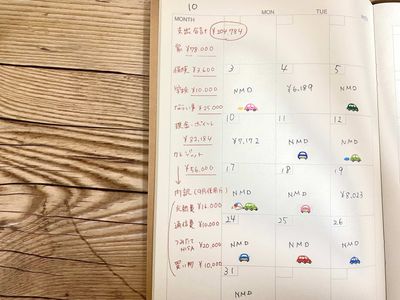 10
MONTH
MON
TUE
支出合計 ¥204,784
家 ¥78,000
保険 ¥7,600
学校 ¥10,000
ならい事 ¥25,000
現金・ポイント
¥83,184
クレジット
¥56,000
内訳(9月使用分)
光熱費 ¥16,000
通信費 ¥10,000
つみたてNISA ¥20,000
買い物 ¥10,000
3 4 5
NMD ¥6,189 NMD
10 11 12
¥7,172 NMD NMD
17 18 19
NMD NMD ¥8,023
24 25 26
NMD NMD NMD
31
NMD